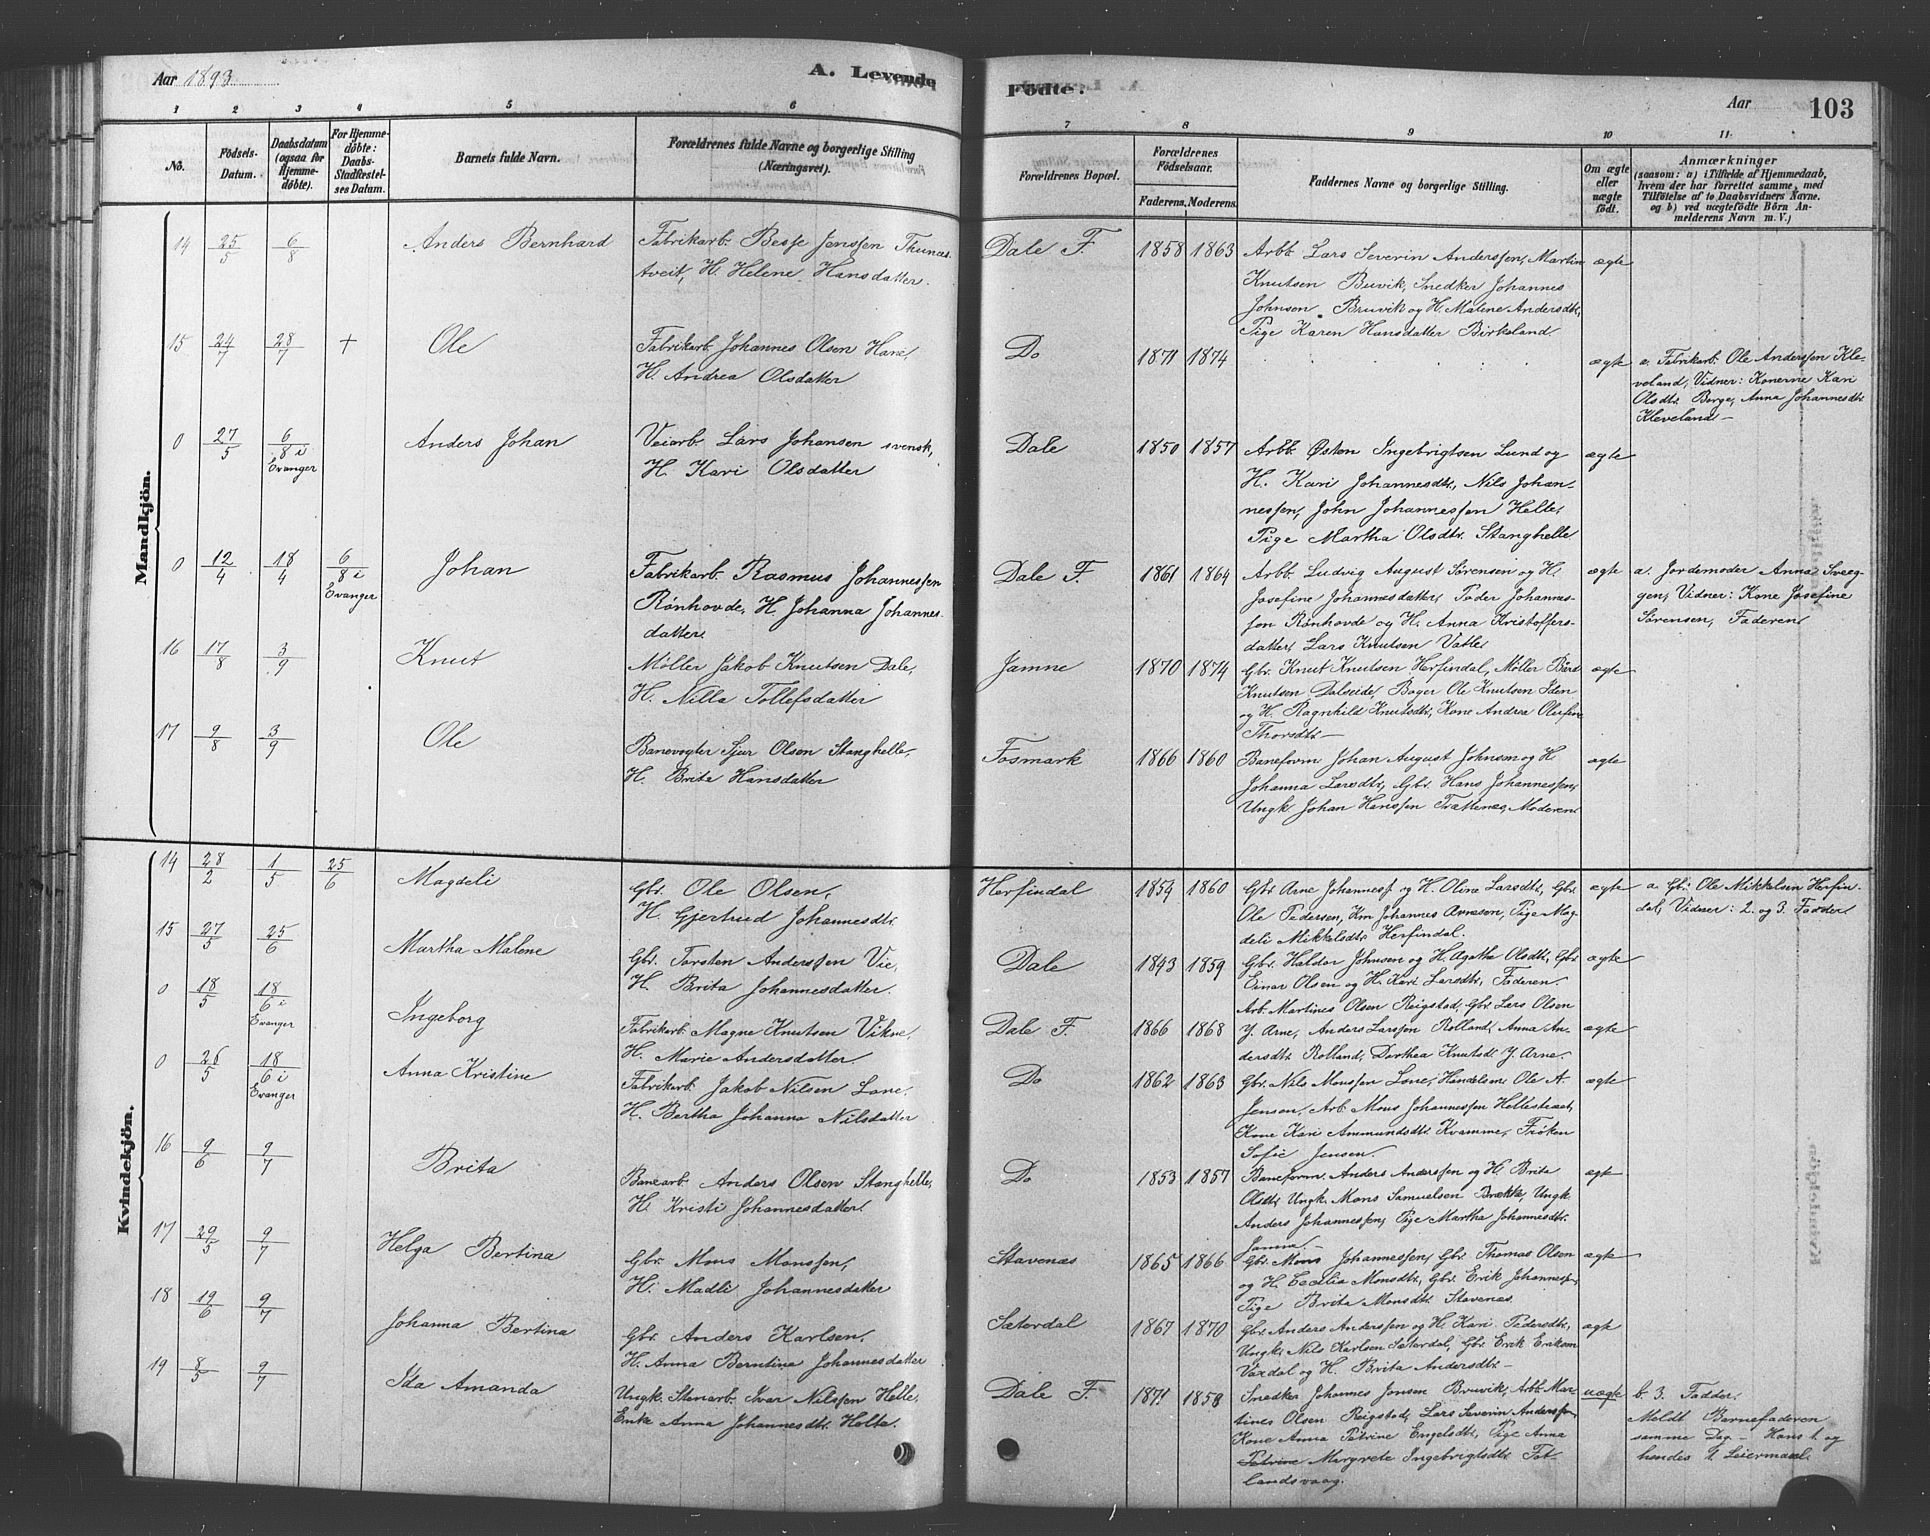 Aar 1893.
A. Levende
1 2 3 4 5 6
No.
Födsels-
Datum.
Daabsdatum
(ogsaa for
Hjemme-
døbte).
For Hjemme-
døbte:
Daabs-
Stadfæstel-
ses Datum.
Barnets fulde Navn.
Forældrenes fulde Navne og borgerlige Stilling
(Næringsvei).
Mandkjön.
14 25/5 6/8 Anders Bernhard Fabrikarb. Besse Jenssen Thunes-
tveit, H. Helene Hansdatter.
15 24/7 28/7 + Ole Fabrikarb. Johannes Olsen Hane,
H. Andrea Olsdatter
0 27/5 6/8 i Evanger Anders Johan Veiarb. Lars Johansen svensk,
H. Kari Olsdatter
0 12/4 18/4 6/8 i Evanger Johan Fabrikarb. Rasmus Johannessen
Rønhovde, H. Johanna Johannes-
datter
16 17/8 3/9 Knut Møller Jakob Knutsen Dale,
H. Nilla Tollefsdatter
17 9/8 3/9 Ole Banevogter Sjur Olsen Stanghelle,
H. Brita Hansdatter
Kvindekjön.
14 28/2 1/5 25/6 Magdeli Gbr. Ole Olsen,
H. Gjertrud Johannesdtr.
15 27/5 25/6 Martha Malene Gbr. Torsten Anderssen Vie,
H. Brita Johannesdatter.
0 18/5 18/6 i Evanger Ingeborg Fabrikarb. Magne Knutsen Vikne,
H. Marie Andersdatter
0 26/5 18/6 i Evanger Anna Kristine Fabrikarb. Jakob Nilsen Lone,
H. Bertha Johanna Nilsdatter
16 9/6 9/7 Brita Banearb. Anders Olsen Stanghelle,
H. Kristi Johannesdatter
17 29/5 9/7 Helga Bertina Gbr. Mons Monssen,
H. Madli Johannesdatter
18 19/6 9/7 Johanna Bertina Gbr. Anders Karlsen,
H. Anna Berntina Johannesdatter
19 8/5 9/7 Ida Amanda Ungk. Stenarb. Ivar Nilssen Helle,
Enke Anna Johannesdtr. Helle.
Födte.
Aar
103
7 8 9 10 11
Forældrenes Bopæl.
Forældrenes
Födselsaar.
Faderens. Moderens.
Faddernes Navne og borgerlige Stilling.
Om ægte
eller
uægte
født.
Anmærkninger
(saasom: a) i Tilfælde af Hjemmedaab,
hvem der har forrettet samme, med
Tilføielse af to Daabsvidners Navne,
og b) ved uægtefödte Börn An-
melderens Navn m. V.)
Dale F. 1858 1863 Arbb. Lars Severin Anderssen, Martin ægte
Knutsen Buvik, Snedker Johannes
Johnsen Bruvik og H. Malene Andersdtr,
Pige Karen Hansdatter Birkeland
Do 1871 1874 ægte a. Fabrikarb. Ole Anderssen Kle-
veland, Vidner: Konerne Kari
Olsdtr. Borge, Anna Johannesdtr.
Kleveland
Dale 1850 1857 Arbb. Østen Ingebrigtsen Lund og ægte
H. Kari Johannesdtr, Nils Johan-
nessen, John Johannessen Helle,
Pige Martha Olsdtr. Stanghelle
Dale F. 1861 1864 Arbb. Ludvig August Sørensen og H. ægte a. Jordemoder Anna Sveeg-
Josefine Johannesdatter, Peder Johannes- gen, Vidner: Kone Josefine
sen Rønhovde og H. Anna Kristoffers- Sørensen, Faderen
datter, Lars Knutsen Vatle
Jamne 1870 1874 Gbr. Knut Knutsen Herfindal, Møller Baard ægte
Knutsen Dalseide, Bager Ole Knutsen Iden
og H. Ragnhild Knutsdtr, Kone Andrea Olufine
Thorsdtr
Fosmark 1866 1860 Baneform. Johan August Johnson og H. ægte
Johanna Larsdtr, Gbr. Hans Johannessen,
Ungk. Johan Hanssen Trættenes, Moderen
Herfindal 1854 1860 Gbr Arne Johanness. og H. Oline Larsdtr, Gbr. ægte a. Gbr. Ole Mikkelsen Herfin-
Ole Pedersen, Km Johannes Arneson, Pige Mag- dal, Vidner: 2. og 3. Fadder
deli Mikkelsdtr. Herfindal.
Dale 1843 1859 Gbr. Haldor Johnsen og H. Agatha Olsdtr, Gbr ægte
Einar Olsen og H. Kari Larsdtr, Faderen.
Dale F. 1866 1868 Arb. Martines Olsen Reigstad, Gbr. Lars Olsen ægte
Y. Arne, Anders Larssen Rolland, Anna An-
dersdtr. Rolland, Dorthea Knutsdtr. Y. Arne
Do 1862 1863 Gbr. Nils Monssen Lone, Handelsm. Ole A. ægte
Jensen, Arb. Mons Johannessen Hellestraet,
Kone Kari Ammundsdtr. Kvamme, Frøken
Sofie Jensen.
Do 1853 1857 Baneform. Anders Anderssen og H. Brita ægte
Olsdtr, Ungk. Mons Samuelsen Brække, Ungk.
Anders Johannessen, Pige Martha Johannesdtr.
Jamne
Stavenæs 1865 1866 Gbr. Mons Johannessen, Gbr. Thomas Olsen ægte
og H. Cecilia Monsdtr, Gbr. Erik Johanness,
Pige Brita Monsdtr. Stavenæs
Sæterdal 1867 1870 Gbr. Anders Anderssen og H. Kari Pedersdtr, ægte
Ungk. Nils Karlsen Sæterdal, Gbr. Erik Eriksen
Vaxdal og H. Brita Andersdtr.
Dale F. 1871 1858 Snedker Johannes Jonsen Bruvik, Arbb. Mar- uægte b. 3. Fadder.
tines Olsen Reigstad, Lars Severin Anderssen, Meldt Barnefaderen
Kone Anna Petrine Engelsdtr, Pige Anna samme Dag. Hans 1. og
Petrine Margrete Ingebrigtsdtr. Fot- hendes 1. Leiermaal.
landsvaag.